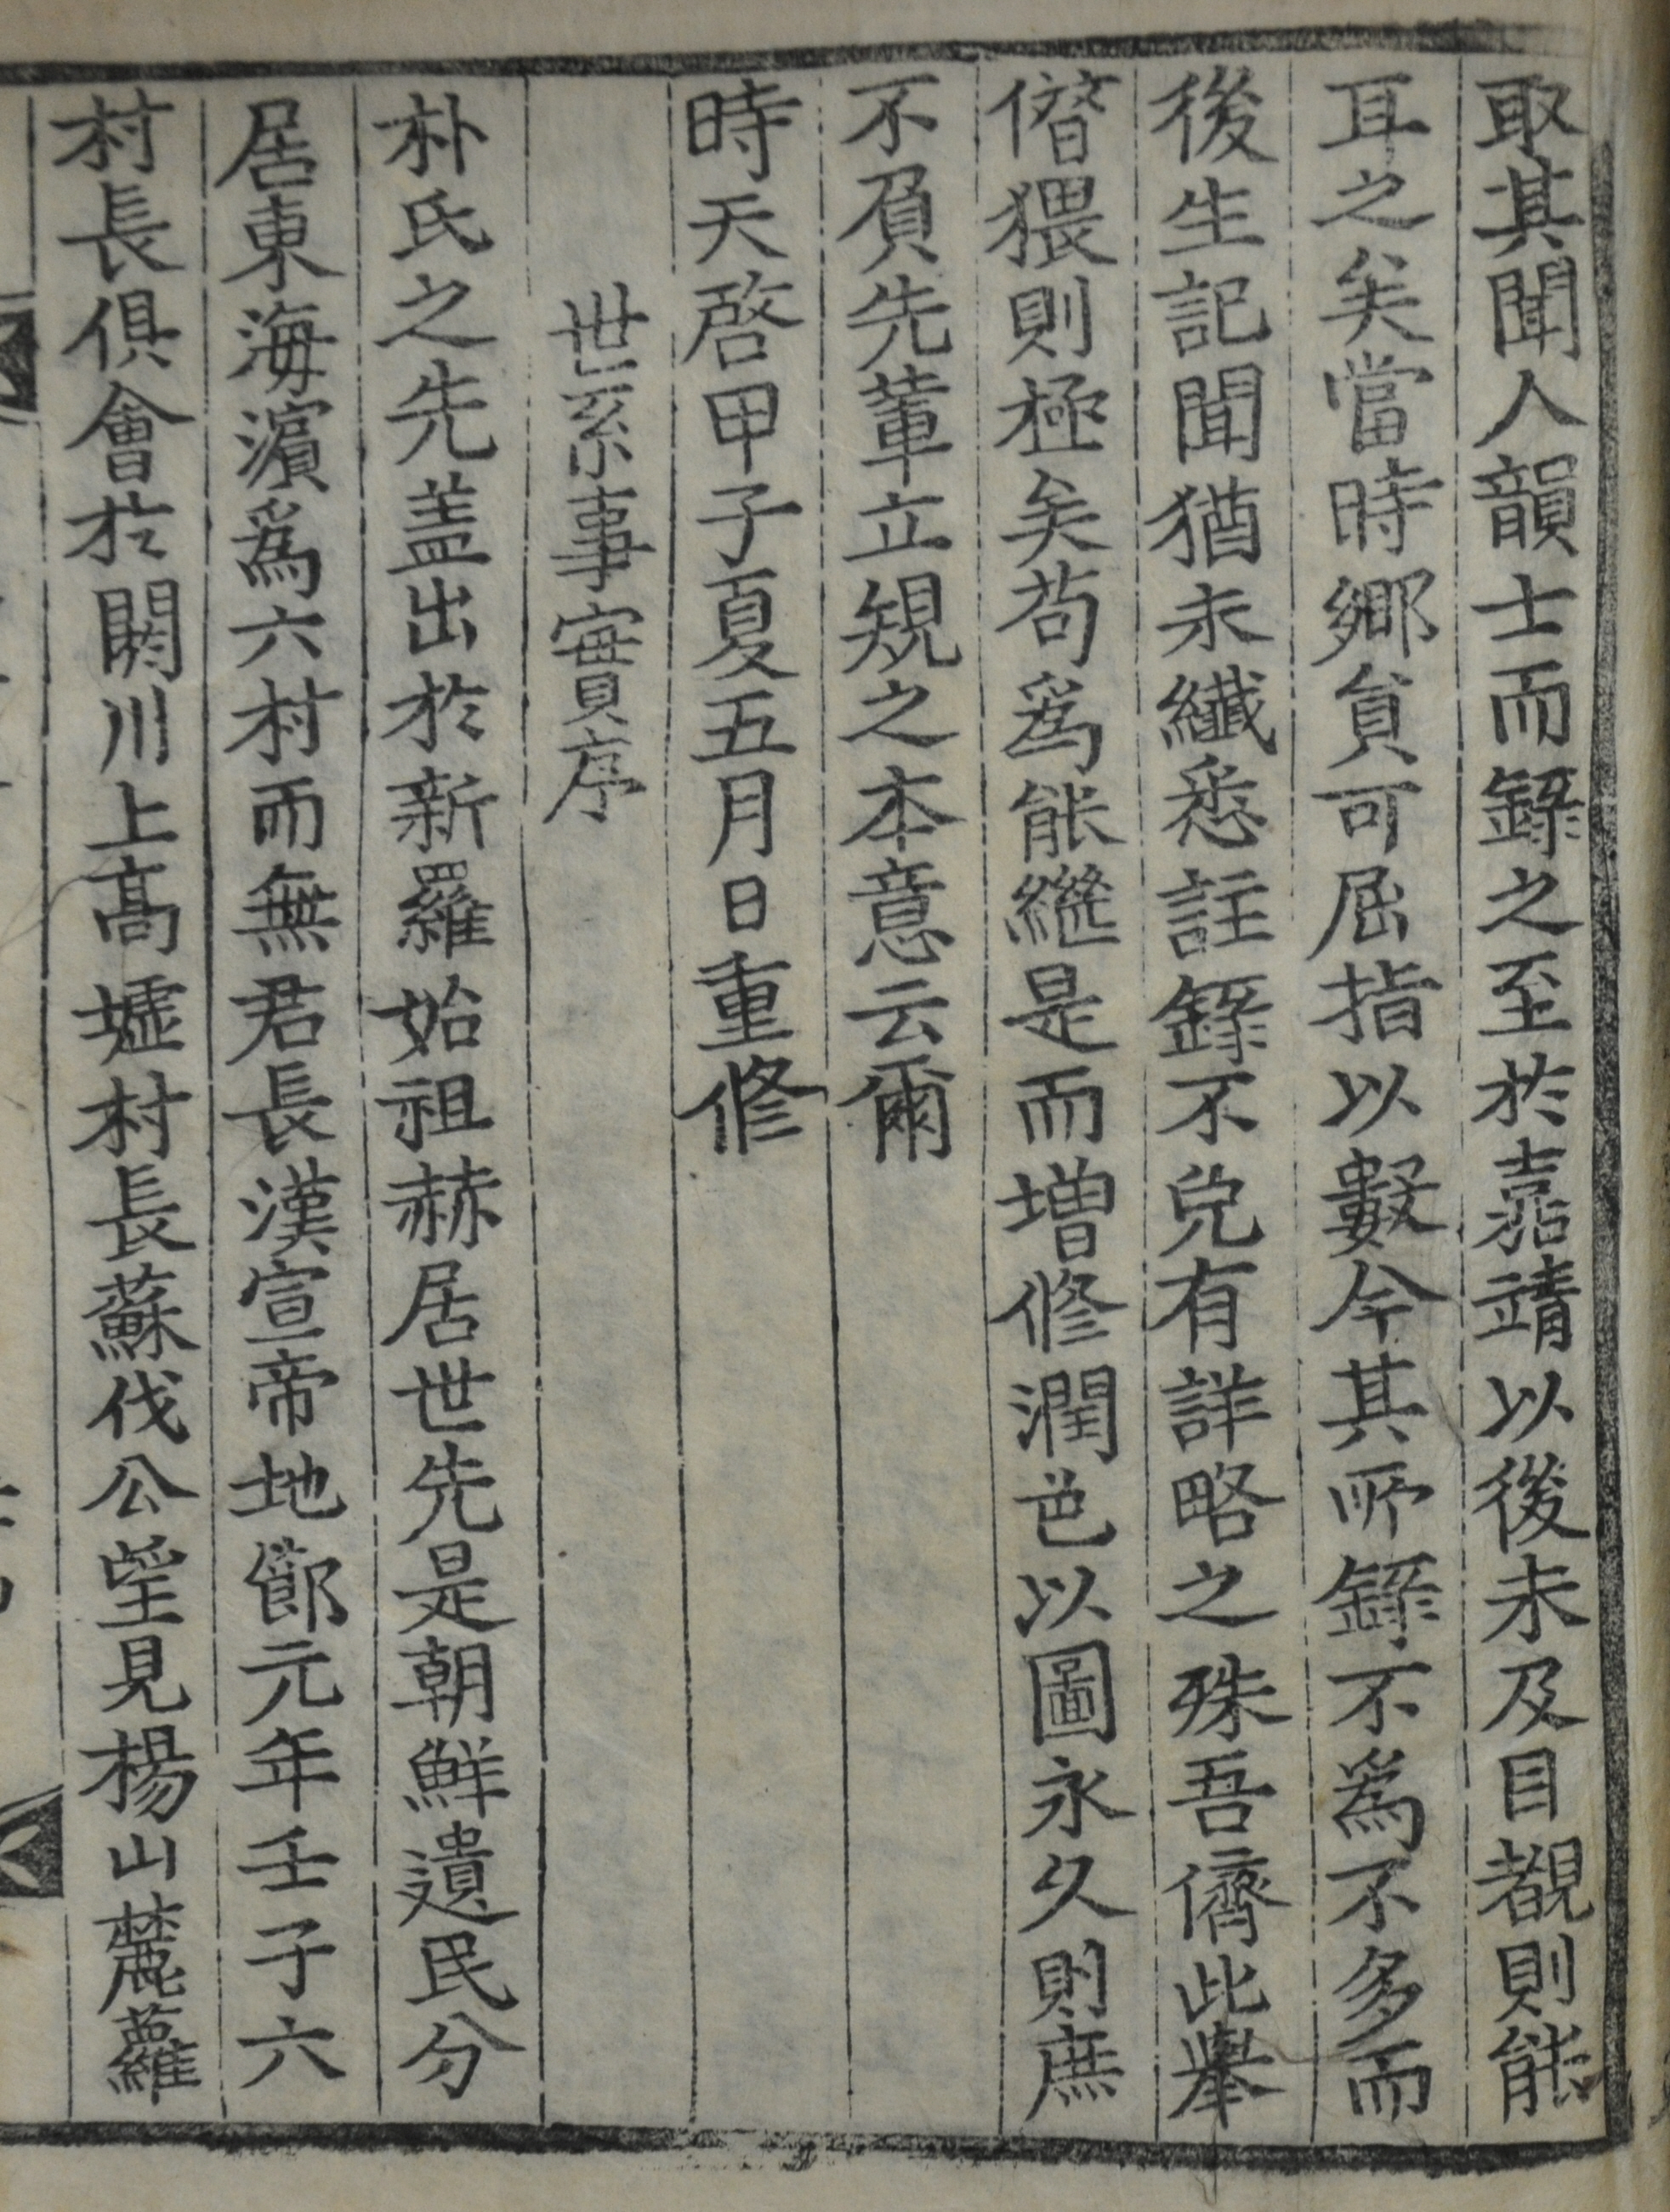 取其聞人韻士而錄之至於嘉靖以後未及目覩則能
耳之矣當時鄉貟可屈指以數今其所錄不爲不多而
後生記聞猶未纖悉註錄不免有詳略之殊吾儕此擧
僭猥則極矣苟爲能繼是而增修潤色以圖永久則庶
不負先輩立規之本意云爾
時天啓甲子夏五月日重修
世系事實序
朴氏之先盖出於新羅始祖赫居世先是朝鮮遺民分
居東海濱爲六村而無君長漢宣帝地節元年壬子六
村長俱會於閼川上高墟村長蘇伐公望見楊山麓蘿